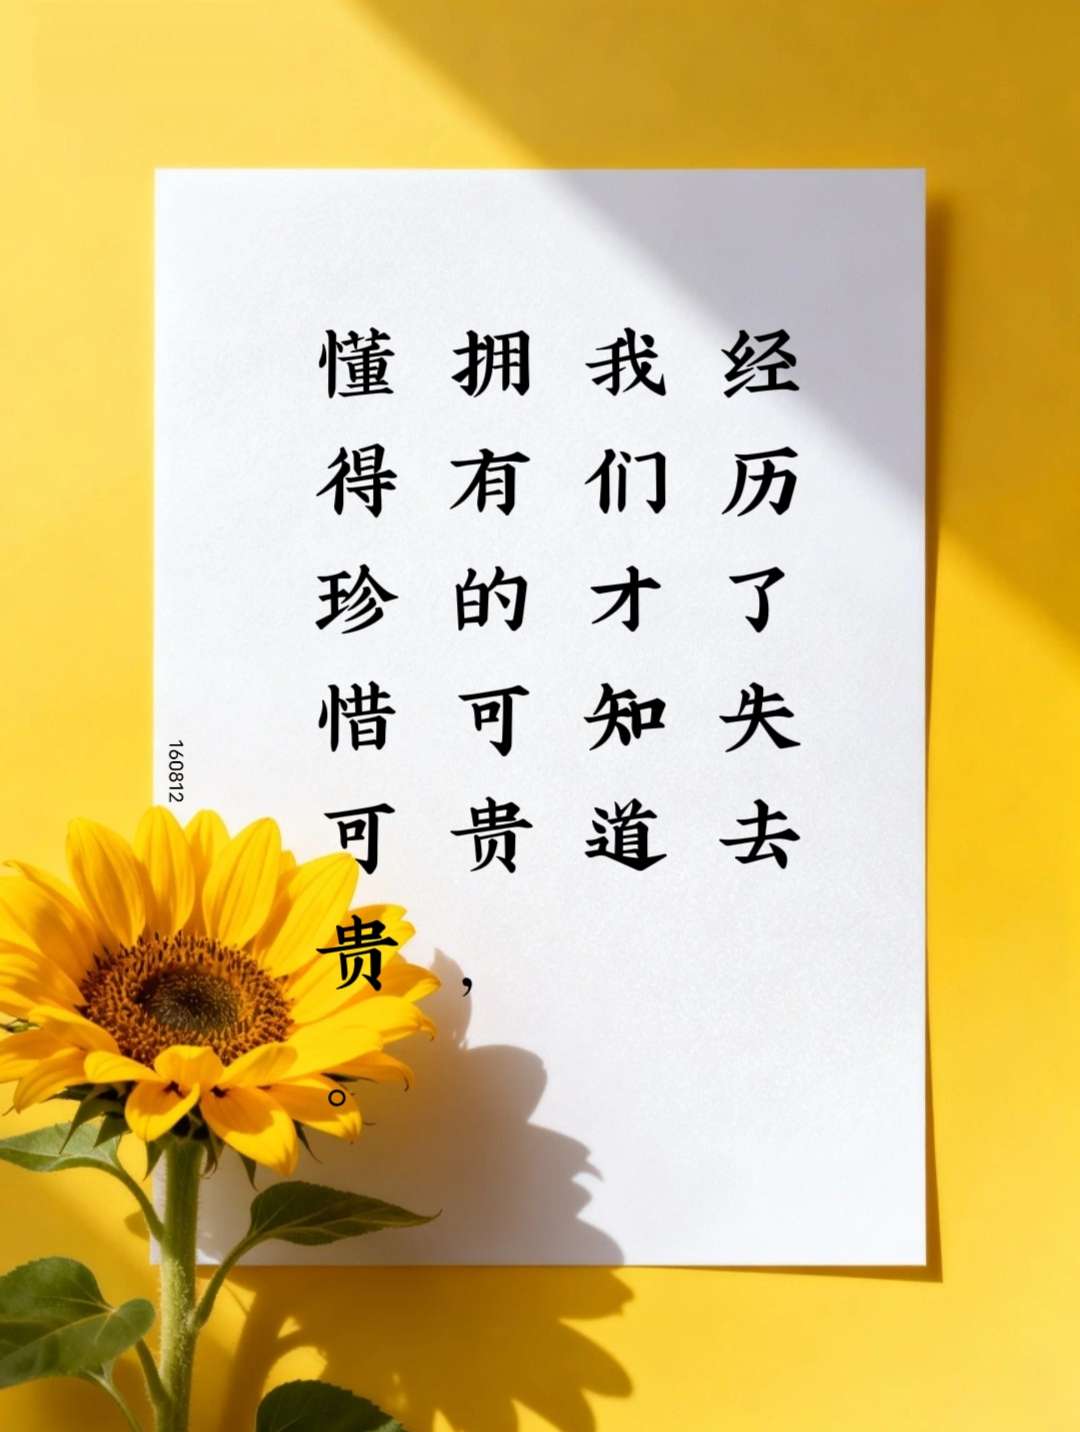 经历了失去
我们才知道
拥有的可贵，
懂得珍惜可贵。
160812